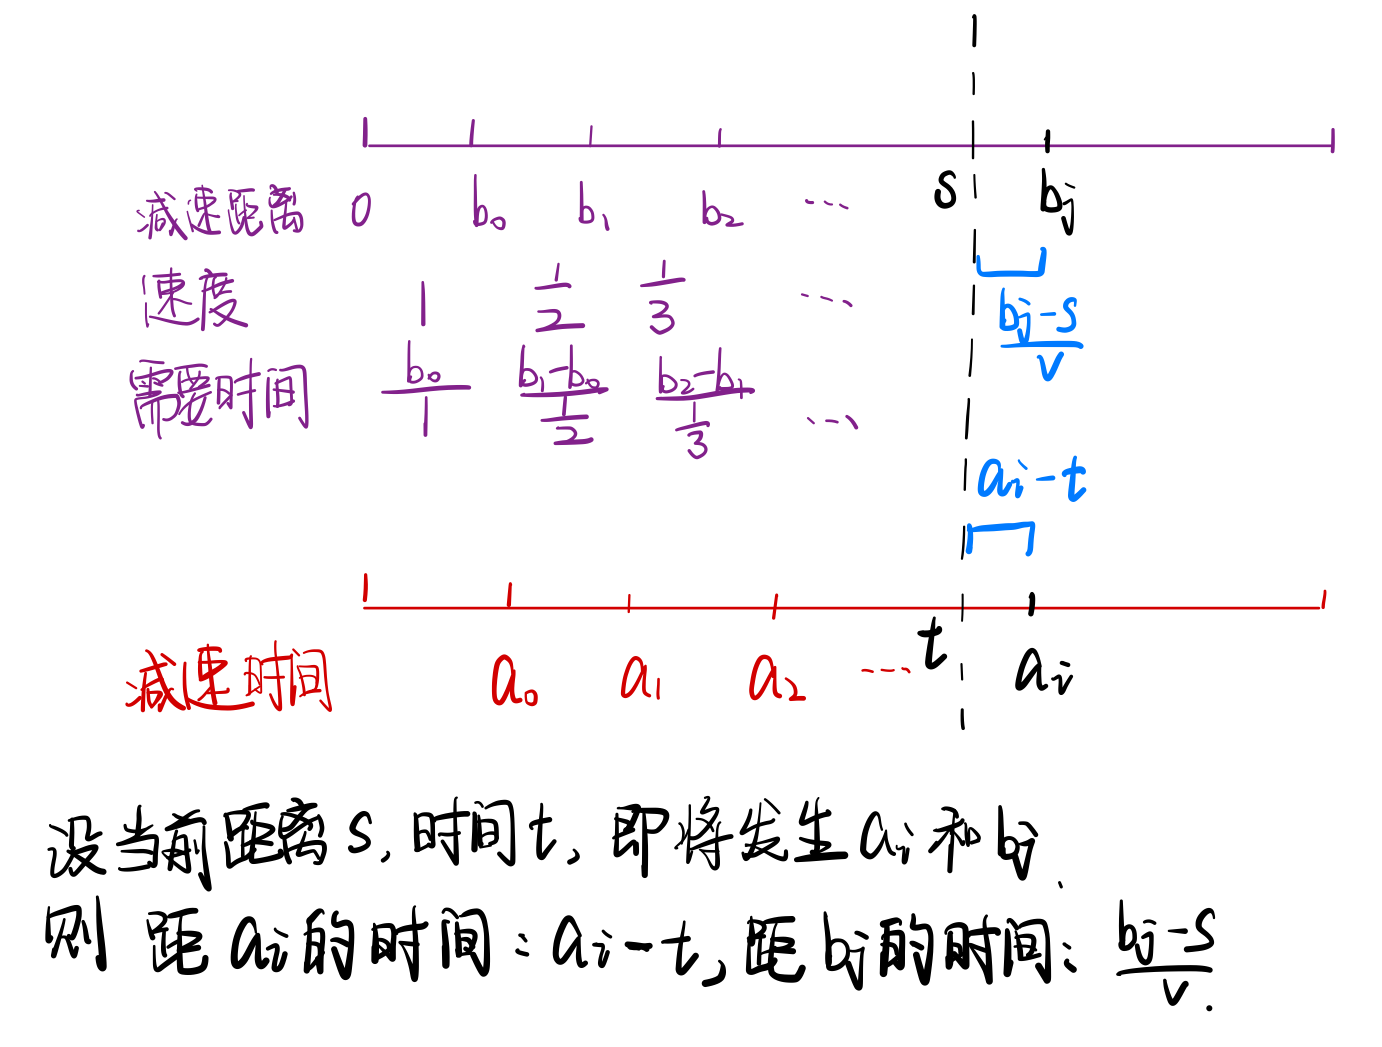 减速距离 0 b₀ b₁ b₂ ... s bⱼ
速度 1 1/2 1/3 ... (bⱼ-s)/v
需要时间 b₀/1 (b₁-b₀)/(1/2) (b₂-b₁)/(1/3) ...
aᵢ-t
减速时间 a₀ a₁ a₂ ... t aᵢ
设当前距离 s, 时间 t, 即将发生 aᵢ 和 bⱼ.
则 距 aᵢ 的时间: aᵢ-t, 距 bⱼ 的时间: (bⱼ-s)/v.